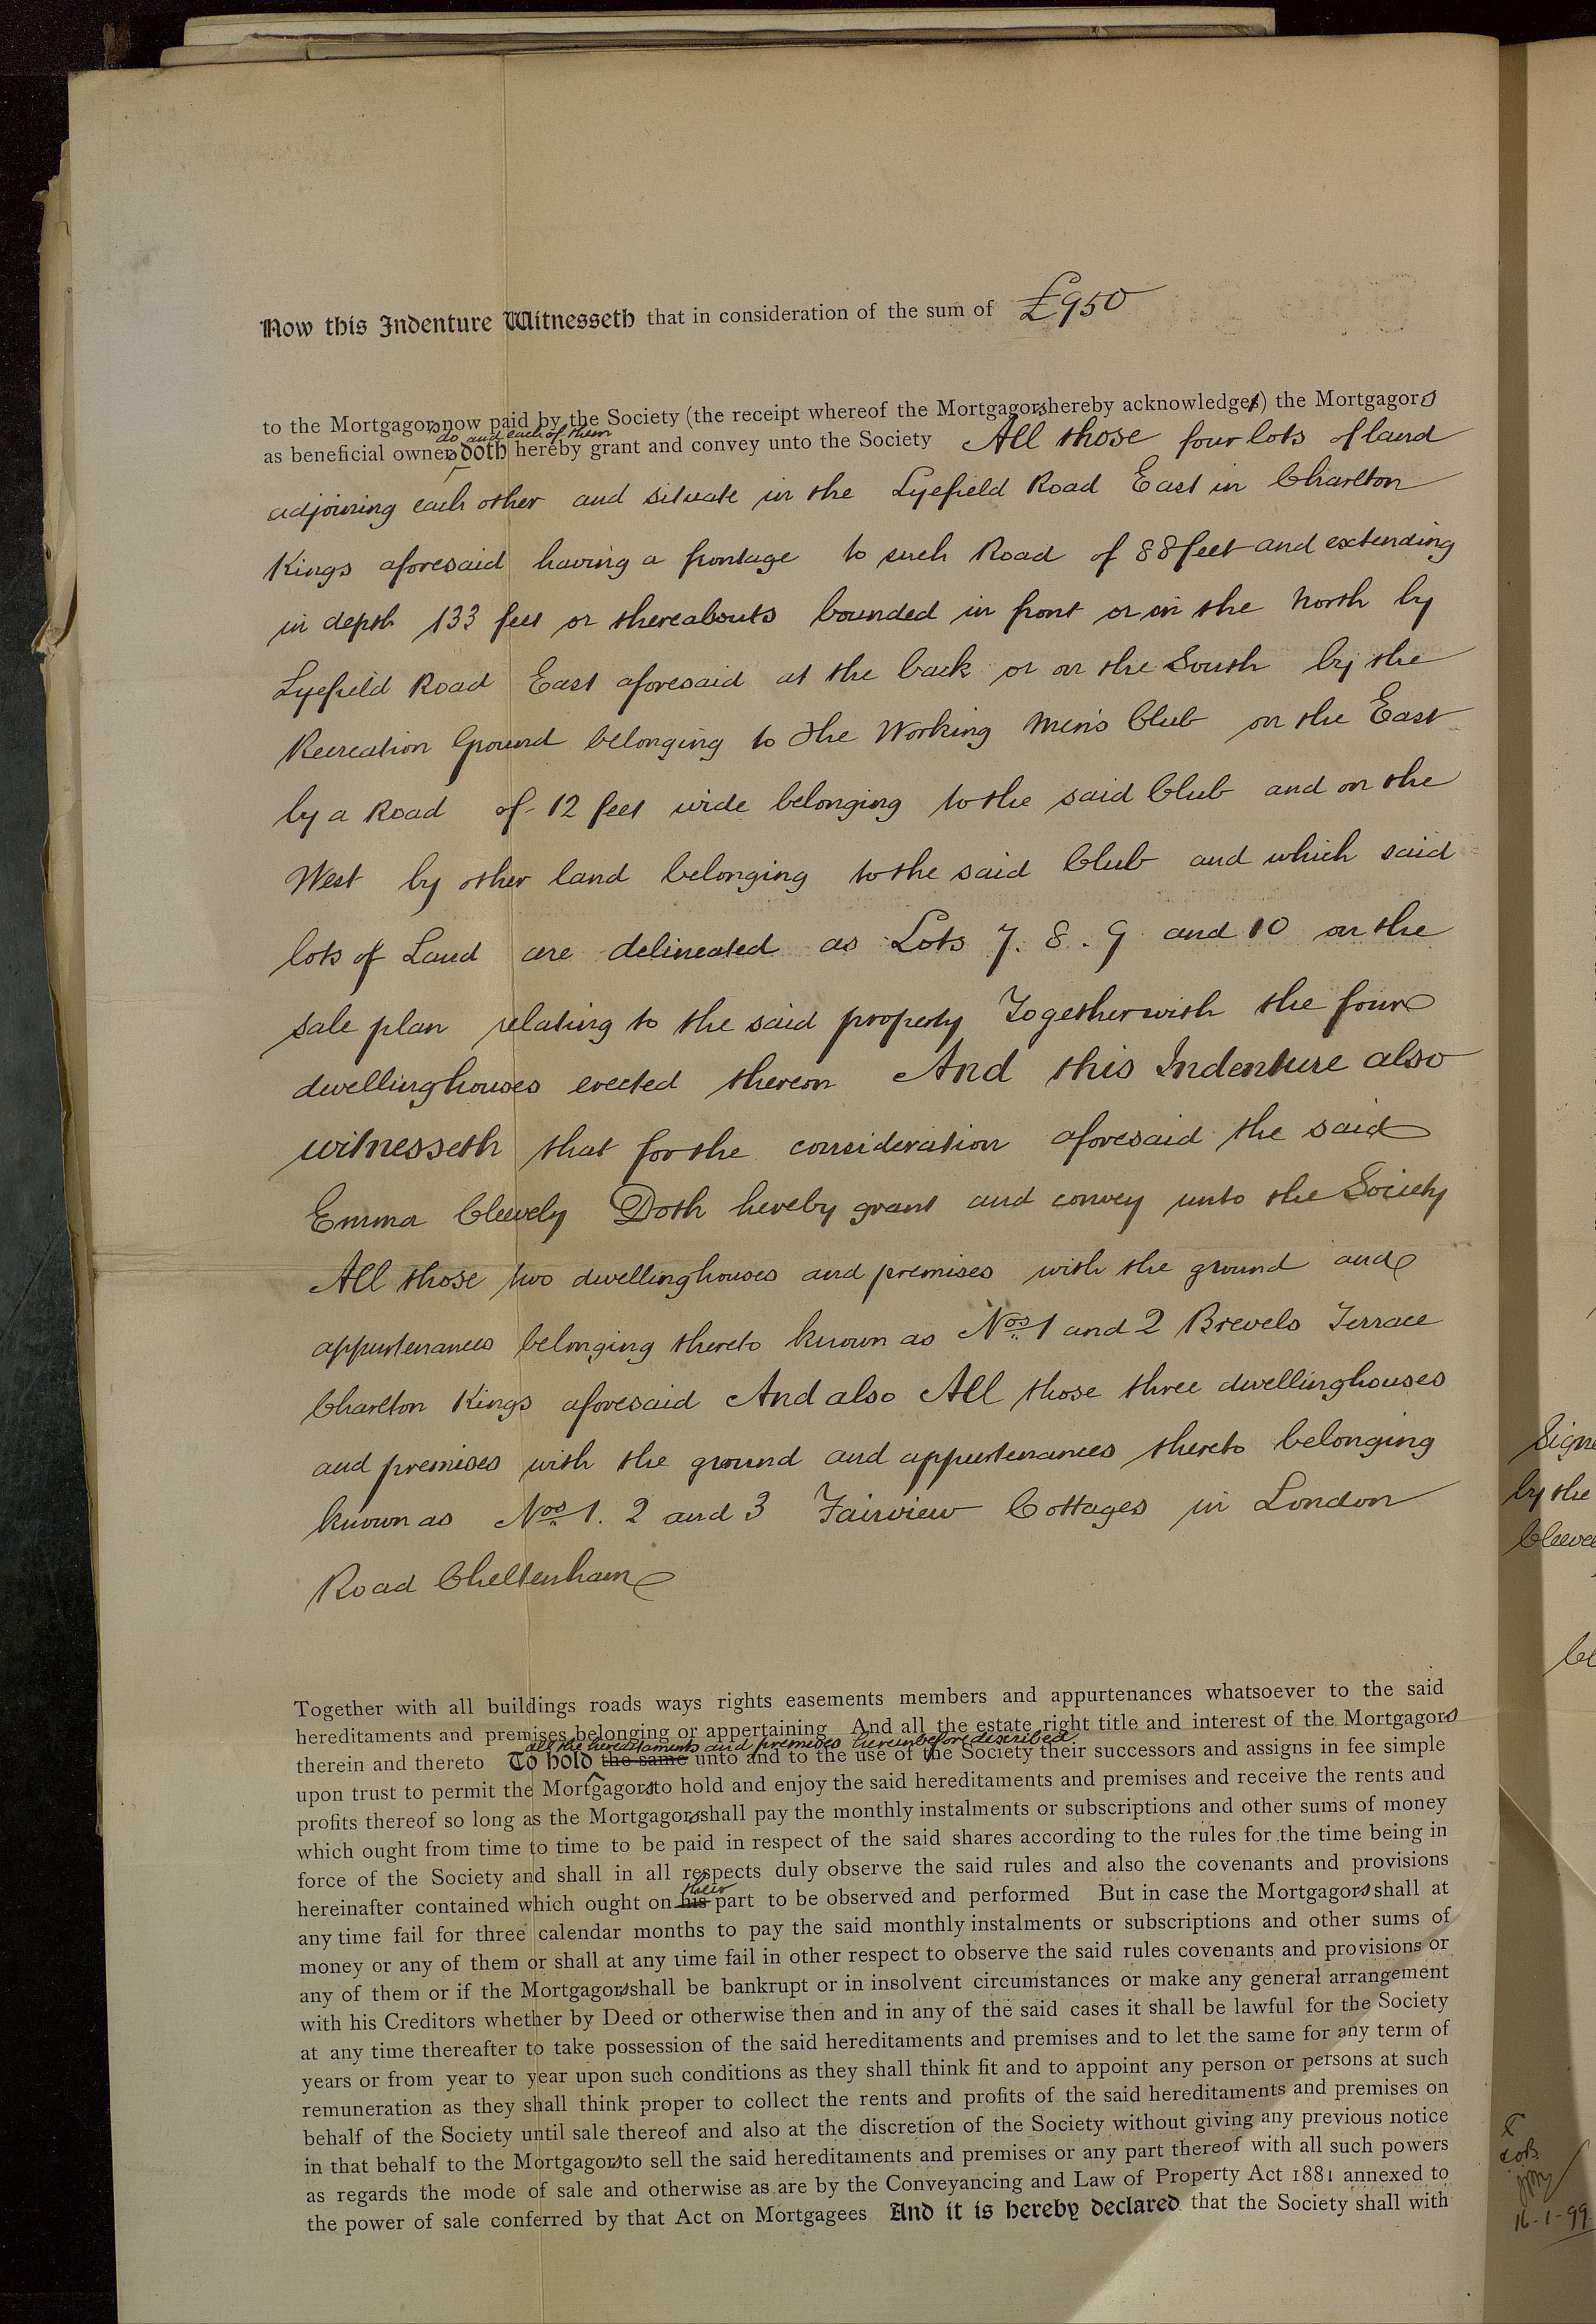 Now this Indenture Witnesseth that in consideration of the sum of £950
to the Mortgagors now paid by the Society (the receipt whereof the Mortgagors hereby acknowledge) the Mortgagors
do and each of them
as beneficial owners doth hereby grant and convey unto the Society All those four lots of land
adjoining each other and situate in the Lyefield Road East in Charlton
Kings aforesaid having a frontage to such Road of 88 feet and extending
in depth 133 feet or thereabouts bounded in front or on the North by
Lyefield Road East aforesaid at the back or on the South by the
Recreation Ground belonging to the Working Men's Club on the East
by a Road of 12 feet wide belonging to the said Club and on the
West by other land belonging to the said Club and which said
lots of Land are delineated as Lots 7. 8. 9 and 10 on the
sale plan relating to the said property Together with the four
dwellinghouses erected thereon And this Indenture also
witnesseth that for the consideration aforesaid the said
Emma Cleevely Doth hereby grant and convey unto the Society
All those two dwellinghouses and premises with the ground and
appurtenances belonging thereto known as Nos. 1 and 2 Brevels Terrace
Charlton Kings aforesaid And also All those three dwellinghouses
and premises with the ground and appurtenances thereto belonging
known as Nos. 1. 2 and 3 Fairview Cottages in London
Road Cheltenham
Together with all buildings roads ways rights easements members and appurtenances whatsoever to the said
hereditaments and premises belonging or appertaining And all the estate right title and interest of the Mortgagors
all the hereditaments and premises hereinbefore described
therein and thereto To hold the same unto and to the use of the Society their successors and assigns in fee simple
upon trust to permit the Mortgagors to hold and enjoy the said hereditaments and premises and receive the rents and
profits thereof so long as the Mortgagors shall pay the monthly instalments or subscriptions and other sums of money
which ought from time to time to be paid in respect of the said shares according to the rules for the time being in
force of the Society and shall in all respects duly observe the said rules and also the covenants and provisions
their
hereinafter contained which ought on his part to be observed and performed But in case the Mortgagors shall at
any time fail for three calendar months to pay the said monthly instalments or subscriptions and other sums of
money or any of them or shall at any time fail in other respect to observe the said rules covenants and provisions or
any of them or if the Mortgagors shall be bankrupt or in insolvent circumstances or make any general arrangement
with his Creditors whether by Deed or otherwise then and in any of the said cases it shall be lawful for the Society
at any time thereafter to take possession of the said hereditaments and premises and to let the same for any term of
years or from year to year upon such conditions as they shall think fit and to appoint any person or persons at such
remuneration as they shall think proper to collect the rents and profits of the said hereditaments and premises on
behalf of the Society until sale thereof and also at the discretion of the Society without giving any previous notice
in that behalf to the Mortgagors to sell the said hereditaments and premises or any part thereof with all such powers
as regards the mode of sale and otherwise as are by the Conveyancing and Law of Property Act 1881 annexed to
the power of sale conferred by that Act on Mortgagees And it is hereby declared that the Society shall with
Signe
by the
Cleeve
16-1-99